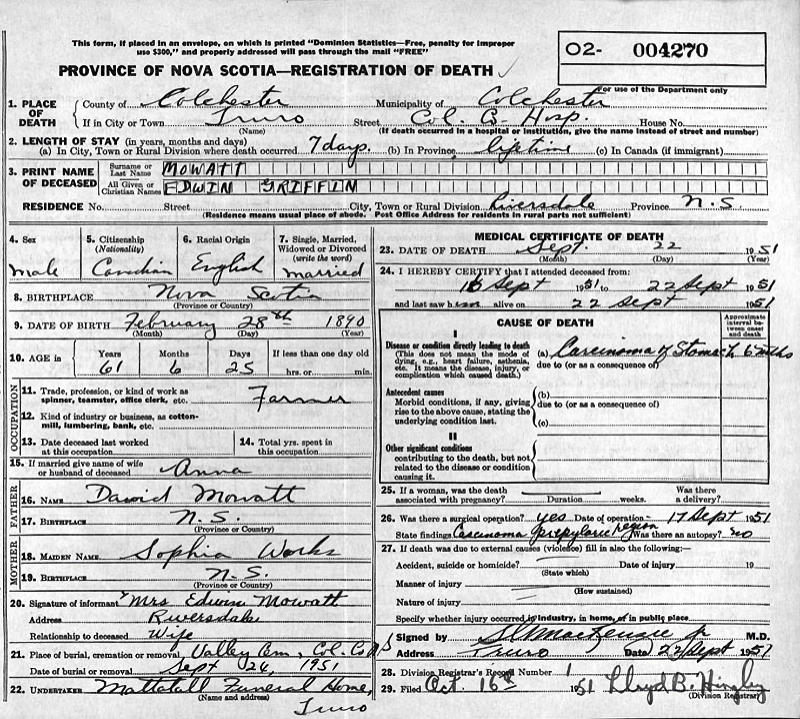 This form, if placed in an envelope, on which is printed "Dominion Statistics—Free, penalty for improper
use $300," and properly addressed will pass through the mail "FREE"
O2- 004270
For use of the Department only
PROVINCE OF NOVA SCOTIA—REGISTRATION OF DEATH
1. PLACE OF DEATH County of Colchester Municipality of Colchester
If in City or Town Truro Street Col. Co. Hosp. House No.
(Name) (If death occurred in a hospital or institution, give the name instead of street and number)
2. LENGTH OF STAY (in years, months and days)
(a) In City, Town or Rural Division where death occurred 7 days. (b) In Province lifetime (c) In Canada (if immigrant)
3. PRINT NAME OF DECEASED Surname or Last Name MOWATT
All Given or Christian Names EDWIN GRIFFIN
RESIDENCE No. Street City, Town or Rural Division Riversdale Province N.S
(Residence means usual place of abode. Post Office Address for residents in rural parts not sufficient)
4. Sex male
5. Citizenship (Nationality) Canadian
6. Racial Origin English
7. Single, Married, Widowed or Divorced (write the word) married
8. BIRTHPLACE Nova Scotia
(Province or Country)
9. DATE OF BIRTH February 28th 1890
(Month) (Day) (Year)
10. AGE in Years 61 Months 6 Days 25 If less than one day old hrs. or min.
OCCUPATION
11. Trade, profession, or kind of work as spinner, teamster, office clerk, etc. Farmer
12. Kind of industry or business, as cotton-mill, lumbering, bank, etc.
13. Date deceased last worked at this occupation
14. Total yrs. spent in this occupation
15. If married give name of wife or husband of deceased Anna
FATHER
16. NAME David Mowatt
17. BIRTHPLACE N.S.
(Province or Country)
MOTHER
18. MAIDEN NAME Sophia Works
19. BIRTHPLACE N.S.
(Province or Country)
20. Signature of informant Mrs Edwin Mowatt
Address Riversdale
Relationship to deceased Wife
21. Place of burial, cremation or removal Valley Cem, Col. Co NS
Date of burial or removal Sept 24, 1951
22. UNDERTAKER Mattatall Funeral Home,
(Name and address) Truro
MEDICAL CERTIFICATE OF DEATH
23. DATE OF DEATH Sept. 22 1951
(Month) (Day) (Year)
24. I HEREBY CERTIFY that I attended deceased from:
16 Sept 1951 to 22 Sept 1951
and last saw him alive on 22 Sept 1951
CAUSE OF DEATH
Approximate interval between onset and death
I
Disease or condition directly leading to death
(This does not mean the mode of dying, e.g., heart failure, asthenia, etc. It means the disease, injury, or complication which caused death.)
(a) Carcinoma of Stomach 6 mths
due to (or as a consequence of)
Antecedent causes
Morbid conditions, if any, giving rise to the above cause, stating the underlying condition last.
(b)
due to (or as a consequence of)
(c)
II
Other significant conditions
contributing to the death, but not related to the disease or condition causing it.
25. If a woman, was the death associated with pregnancy? Duration weeks. Was there a delivery?
26. Was there a surgical operation? yes Date of operation 17 Sept 1951
State findings Carcinoma prepyloric region Was there an autopsy? no
27. If death was due to external causes (violence) fill in also the following:—
Accident, suicide or homicide? Date of injury 19
(State which)
Manner of injury
(How sustained)
Nature of injury
Specify whether injury occurred in industry, in home, or in public place
Signed by MacKenzie jr M.D.
Address Truro Date 22 Sept 1951
28. Division Registrar's Record Number 1
29. Filed Oct. 16th 1951 Lloyd B. Hingley
(Division Registrar)